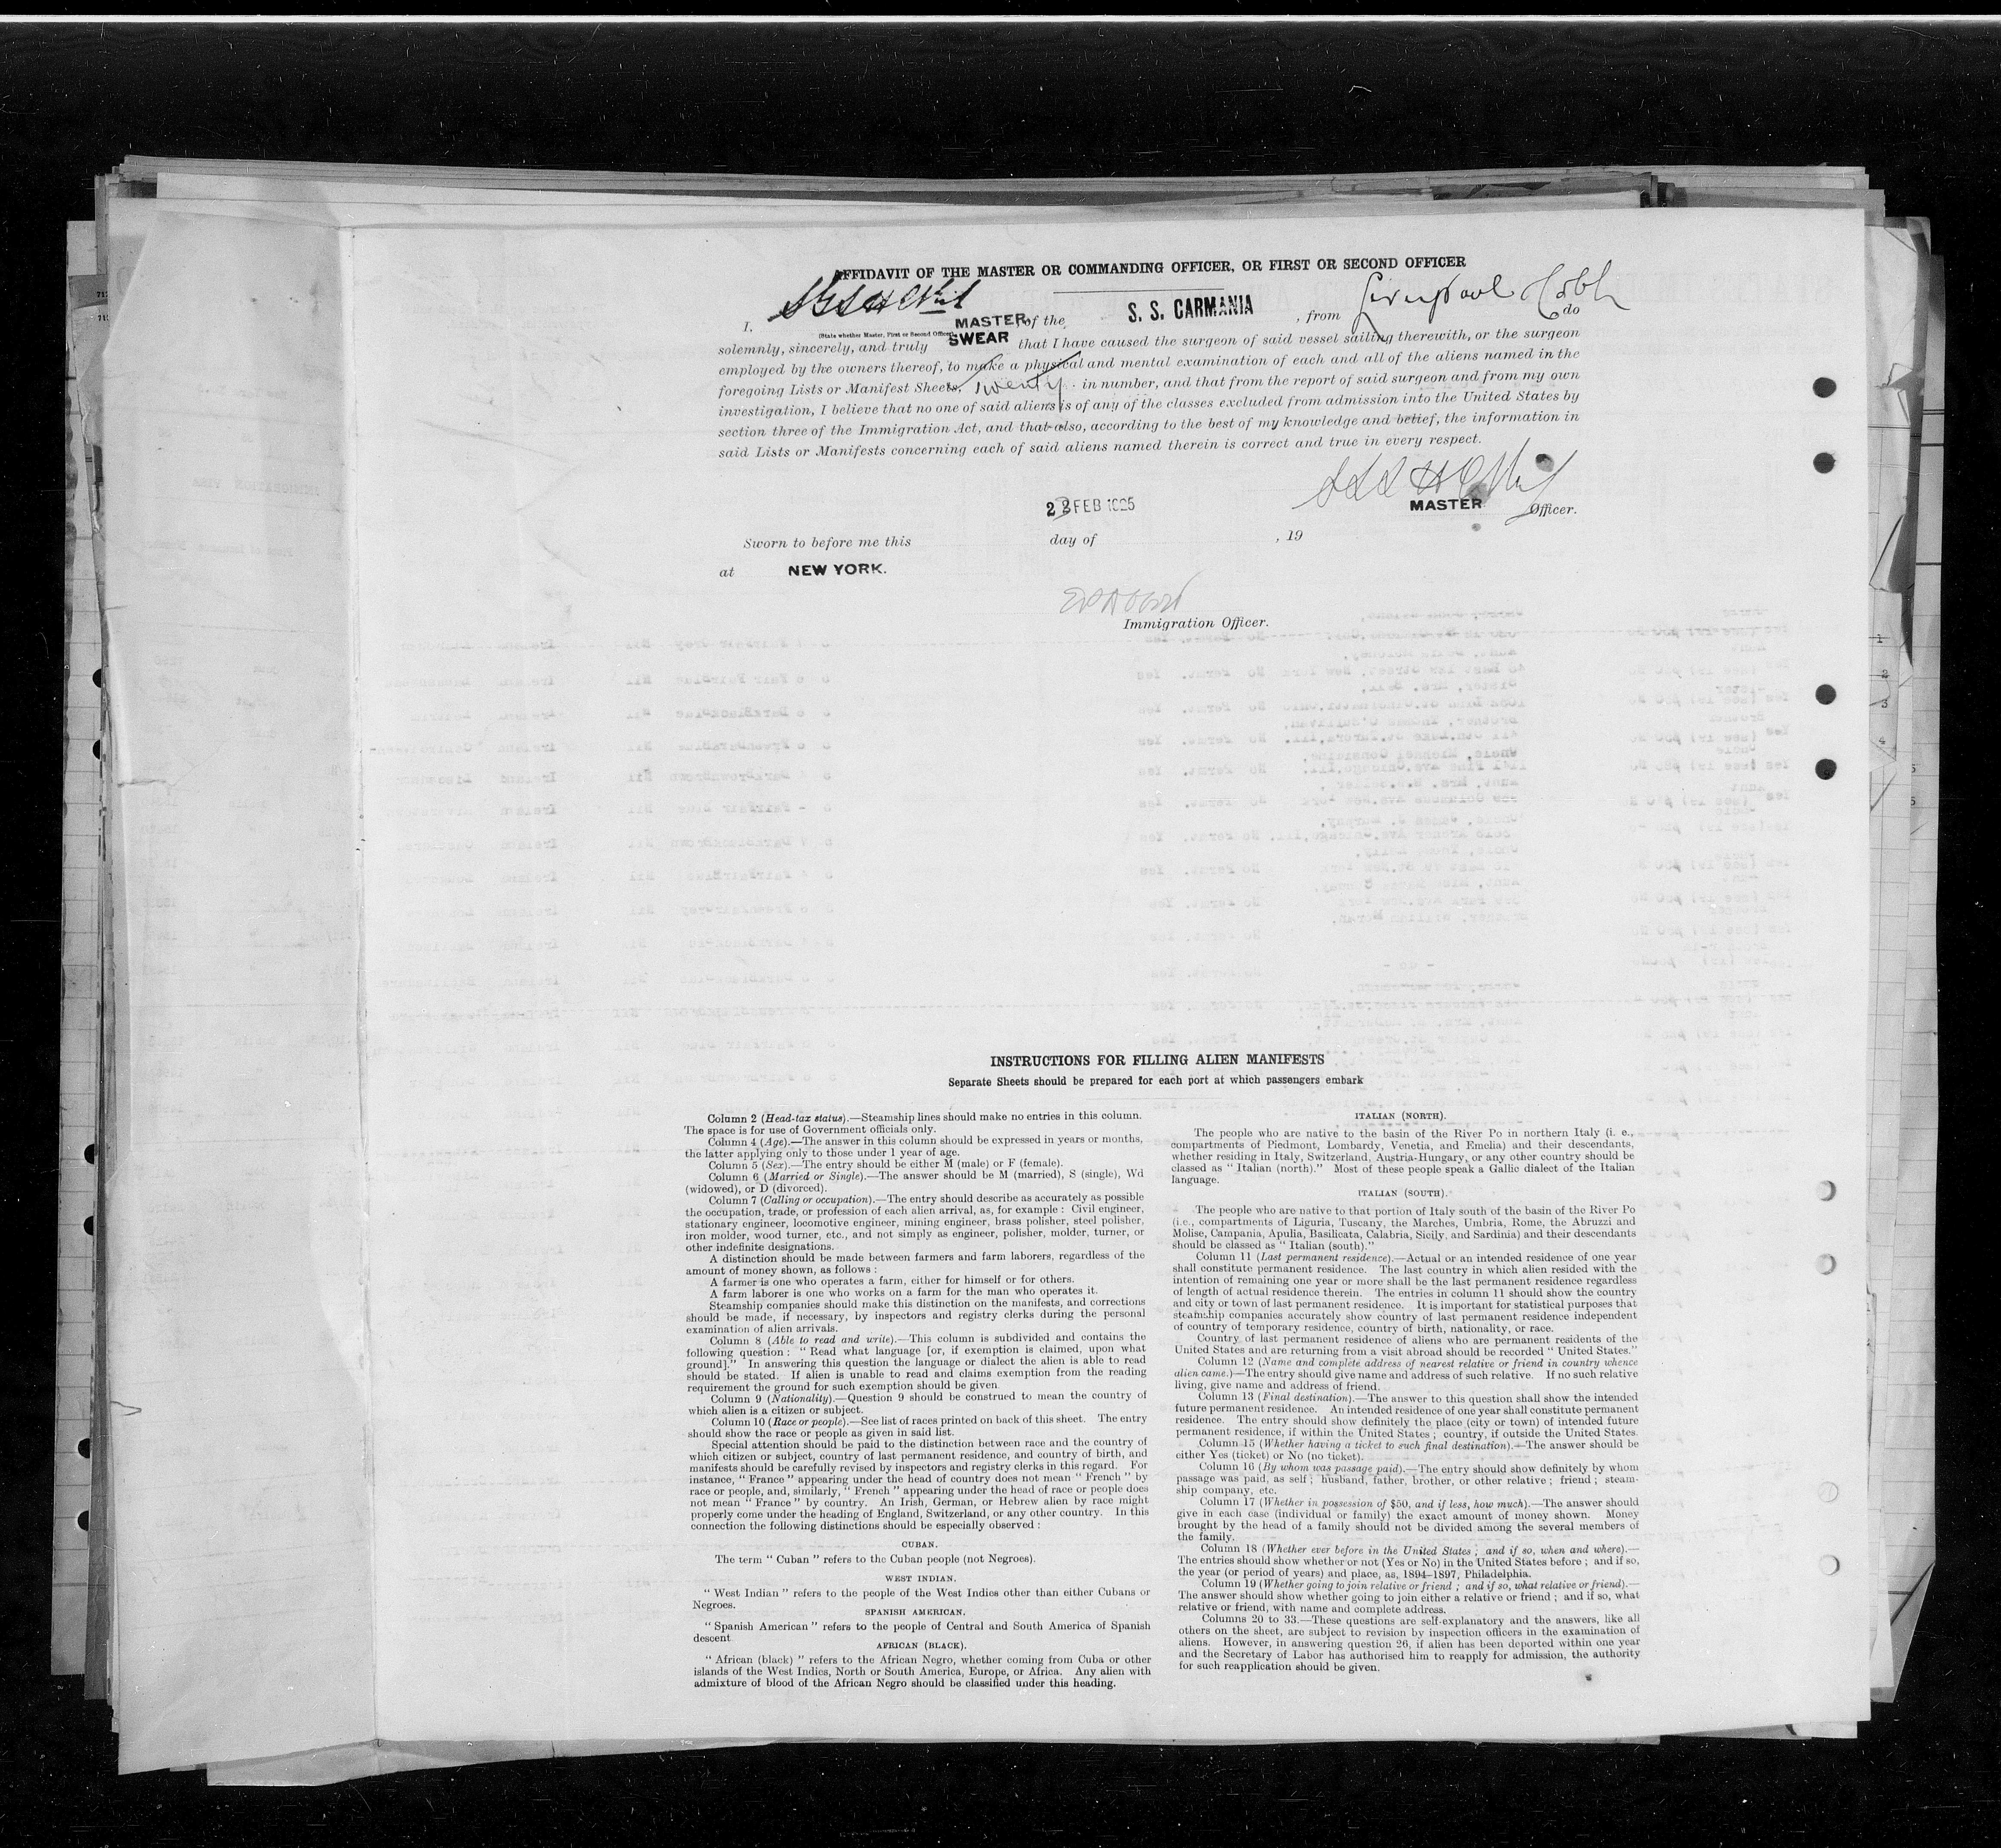 AFFIDAVIT OF THE MASTER OR COMMANDING OFFICER, OR FIRST OR SECOND OFFICER
I, MASTER of the S. S. CARMANIA , from Liverpool Cobh do
(State whether Master, First or Second Officer)
solemnly, sincerely, and truly SWEAR that I have caused the surgeon of said vessel sailing therewith, or the surgeon
employed by the owners thereof, to make a physical and mental examination of each and all of the aliens named in the
foregoing Lists or Manifest Sheets, Twenty in number, and that from the report of said surgeon and from my own
investigation, I believe that no one of said aliens is of any of the classes excluded from admission into the United States by
section three of the Immigration Act, and that also, according to the best of my knowledge and belief, the information in
said Lists or Manifests concerning each of said aliens named therein is correct and true in every respect.
MASTER Officer.
FEB 1925
Sworn to before me this day of , 19
at NEW YORK.
Immigration Officer.
INSTRUCTIONS FOR FILLING ALIEN MANIFESTS
Separate Sheets should be prepared for each port at which passengers embark
Column 2 (Head-tax status).—Steamship lines should make no entries in this column.
The space is for use of Government officials only.
Column 4 (Age).—The answer in this column should be expressed in years or months,
the latter applying only to those under 1 year of age.
Column 5 (Sex).—The entry should be either M (male) or F (female).
Column 6 (Married or Single).—The answer should be M (married), S (single), Wd
(widowed), or D (divorced).
Column 7 (Calling or occupation).—The entry should describe as accurately as possible
the occupation, trade, or profession of each alien arrival, as, for example : Civil engineer,
stationary engineer, locomotive engineer, mining engineer, brass polisher, steel polisher,
iron molder, wood turner, etc., and not simply as engineer, polisher, molder, turner, or
other indefinite designations.
A distinction should be made between farmers and farm laborers, regardless of the
amount of money shown, as follows :
A farmer is one who operates a farm, either for himself or for others.
A farm laborer is one who works on a farm for the man who operates it.
Steamship companies should make this distinction on the manifests, and corrections
should be made, if necessary, by inspectors and registry clerks during the personal
examination of alien arrivals.
Column 8 (Able to read and write).—This column is subdivided and contains the
following question : " Read what language [or, if exemption is claimed, upon what
ground]." In answering this question the language or dialect the alien is able to read
should be stated. If alien is unable to read and claims exemption from the reading
requirement the ground for such exemption should be given.
Column 9 (Nationality).—Question 9 should be construed to mean the country of
which alien is a citizen or subject.
Column 10 (Race or people).—See list of races printed on back of this sheet. The entry
should show the race or people as given in said list.
Special attention should be paid to the distinction between race and the country of
which citizen or subject, country of last permanent residence, and country of birth, and
manifests should be carefully revised by inspectors and registry clerks in this regard. For
instance, " France " appearing under the head of country does not mean " French " by
race or people, and, similarly, " French " appearing under the head of race or people does
not mean " France " by country. An Irish, German, or Hebrew alien by race might
properly come under the heading of England, Switzerland, or any other country. In this
connection the following distinctions should be especially observed :
CUBAN.
The term " Cuban " refers to the Cuban people (not Negroes).
WEST INDIAN.
" West Indian " refers to the people of the West Indies other than either Cubans or
Negroes.
SPANISH AMERICAN.
" Spanish American " refers to the people of Central and South America of Spanish
descent.
AFRICAN (BLACK).
" African (black) " refers to the African Negro, whether coming from Cuba or other
islands of the West Indies, North or South America, Europe, or Africa. Any alien with
admixture of blood of the African Negro should be classified under this heading.
ITALIAN (NORTH).
The people who are native to the basin of the River Po in northern Italy (i. e.,
compartments of Piedmont, Lombardy, Venetia, and Emelia) and their descendants,
whether residing in Italy, Switzerland, Austria-Hungary, or any other country should be
classed as " Italian (north)." Most of these people speak a Gallic dialect of the Italian
language.
ITALIAN (SOUTH).
The people who are native to that portion of Italy south of the basin of the River Po
(i.e., compartments of Liguria, Tuscany, the Marches, Umbria, Rome, the Abruzzi and
Molise, Campania, Apulia, Basilicata, Calabria, Sicily, and Sardinia) and their descendants
should be classed as " Italian (south)."
Column 11 (Last permanent residence).—Actual or an intended residence of one year
shall constitute permanent residence. The last country in which alien resided with the
intention of remaining one year or more shall be the last permanent residence regardless
of length of actual residence therein. The entries in column 11 should show the country
and city or town of last permanent residence. It is important for statistical purposes that
steamship companies accurately show country of last permanent residence independent
of country of temporary residence, country of birth, nationality, or race.
Country of last permanent residence of aliens who are permanent residents of the
United States and are returning from a visit abroad should be recorded " United States."
Column 12 (Name and complete address of nearest relative or friend in country whence
alien came.)—The entry should give name and address of such relative. If no such relative
living, give name and address of friend.
Column 13 (Final destination).—The answer to this question shall show the intended
future permanent residence. An intended residence of one year shall constitute permanent
residence. The entry should show definitely the place (city or town) of intended future
permanent residence, if within the United States ; country, if outside the United States.
Column 15 (Whether having a ticket to such final destination).—The answer should be
either Yes (ticket) or No (no ticket).
Column 16 (By whom was passage paid).—The entry should show definitely by whom
passage was paid, as self ; husband, father, brother, or other relative ; friend ; steam-
ship company, etc.
Column 17 (Whether in possession of $50, and if less, how much).—The answer should
give in each case (individual or family) the exact amount of money shown. Money
brought by the head of a family should not be divided among the several members of
the family.
Column 18 (Whether ever before in the United States ; and if so, when and where).—
The entries should show whether or not (Yes or No) in the United States before ; and if so,
the year (or period of years) and place, as, 1894–1897, Philadelphia.
Column 19 (Whether going to join relative or friend ; and if so, what relative or friend).—
The answer should show whether going to join either a relative or friend ; and if so, what
relative or friend, with name and complete address.
Columns 20 to 33.—These questions are self-explanatory and the answers, like all
others on the sheet, are subject to revision by inspection officers in the examination of
aliens. However, in answering question 26, if alien has been deported within one year
and the Secretary of Labor has authorised him to reapply for admission, the authority
for such reapplication should be given.